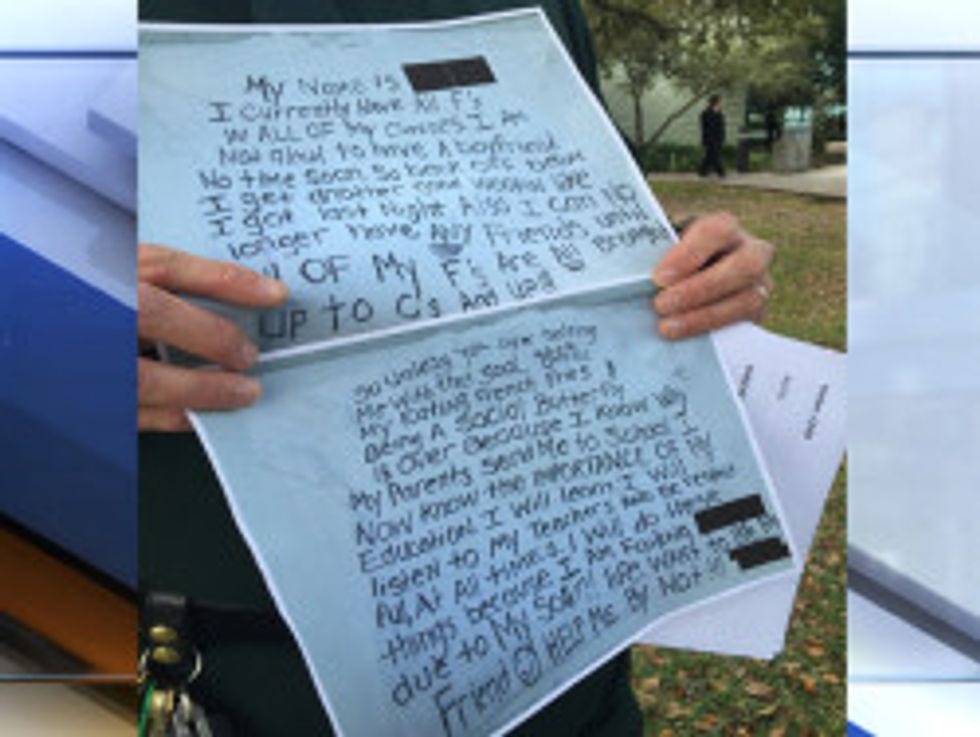 My Name is
I Currently Have All F's
IN ALL OF My Classes I Am
Not about to have A boyfriend
No time soon so back off before
I get another one like
I got last night Also I can NO
longer have ANY Friends until
OF My F's Are Brought
UP TO C's And up!!
So unless you are
Me with this Goal
My Eating French Fries &
Being A Social Butterfly
is Over Because I Know Why
My Parents Send Me to School I
Now Know the IMPORTANCE OF My
Education! I Will learn I Will
listen to My Teachers And Be
At All times, I Will do these
things because I Am Failing
due to My Social life Want to
Friend HELP Me By Not